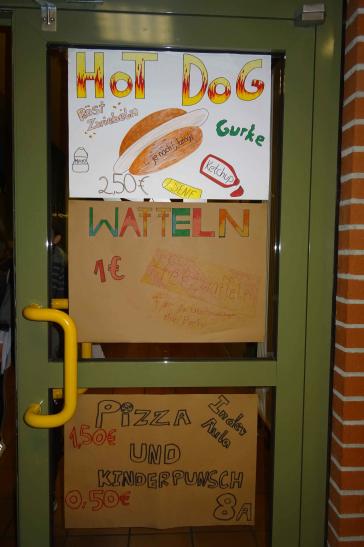 HOT DOG
Röst
Zwiebeln
Gurke
Ketchup
SENF
2,50€
WAFFELN
1€
PIZZA
In der
Aula
1,50€
UND
KINDERPUNSCH
0,50€
8A